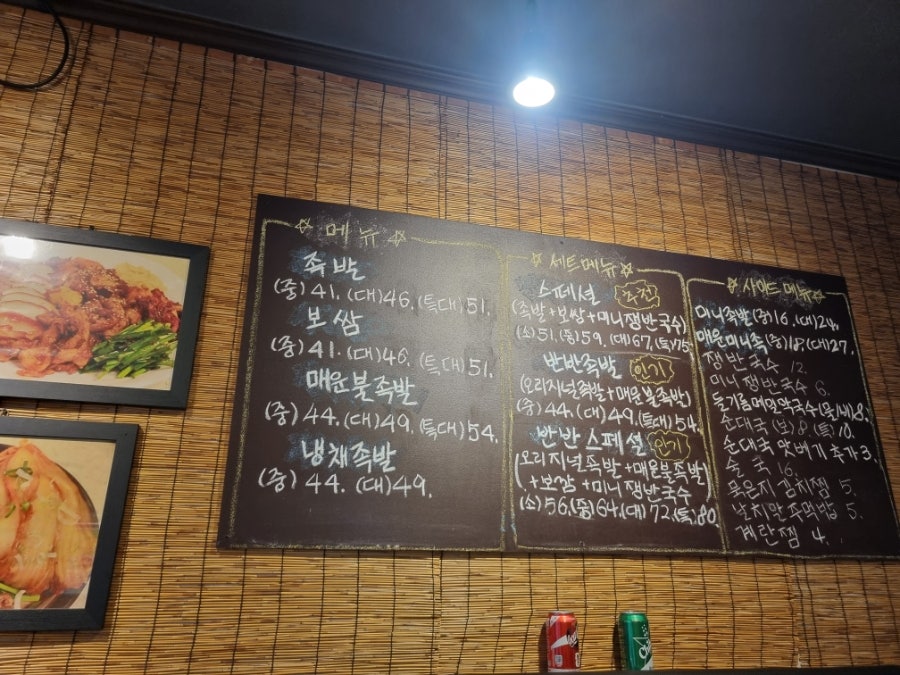 메뉴
족발
(중) 41. (대) 46. (특대) 51.
보쌈
(중) 41. (대) 46. (특대) 51.
매운불족발
(중) 44. (대) 49. (특대) 54.
냉채족발
(중) 44. (대) 49.
세트메뉴
스페셜 추천
(족발+보쌈+미니쟁반국수)
(소) 51. (중) 59. (대) 67. (특) 75.
반반족발 인기
(오리지널족발+매운불족발)
(중) 44. (대) 49. (특대) 54.
반반스페셜 인기
(오리지널족발+매운불족발)
+보쌈+미니쟁반국수
(소) 56. (중) 64. (대) 72. (특) 80.
사이드메뉴
미니족발 (중) 16. (대) 24.
매운미니족 (중) 18. (대) 27.
쟁반국수 12.
미니쟁반국수 6.
들기름메밀막국수(물/비) 8.
순대국 (보) 8. (특) 10.
순대국 맛보기 추가 3.
술국 16.
묵은지김치찜 5.
낙지만주먹밥 5.
계란찜 4.